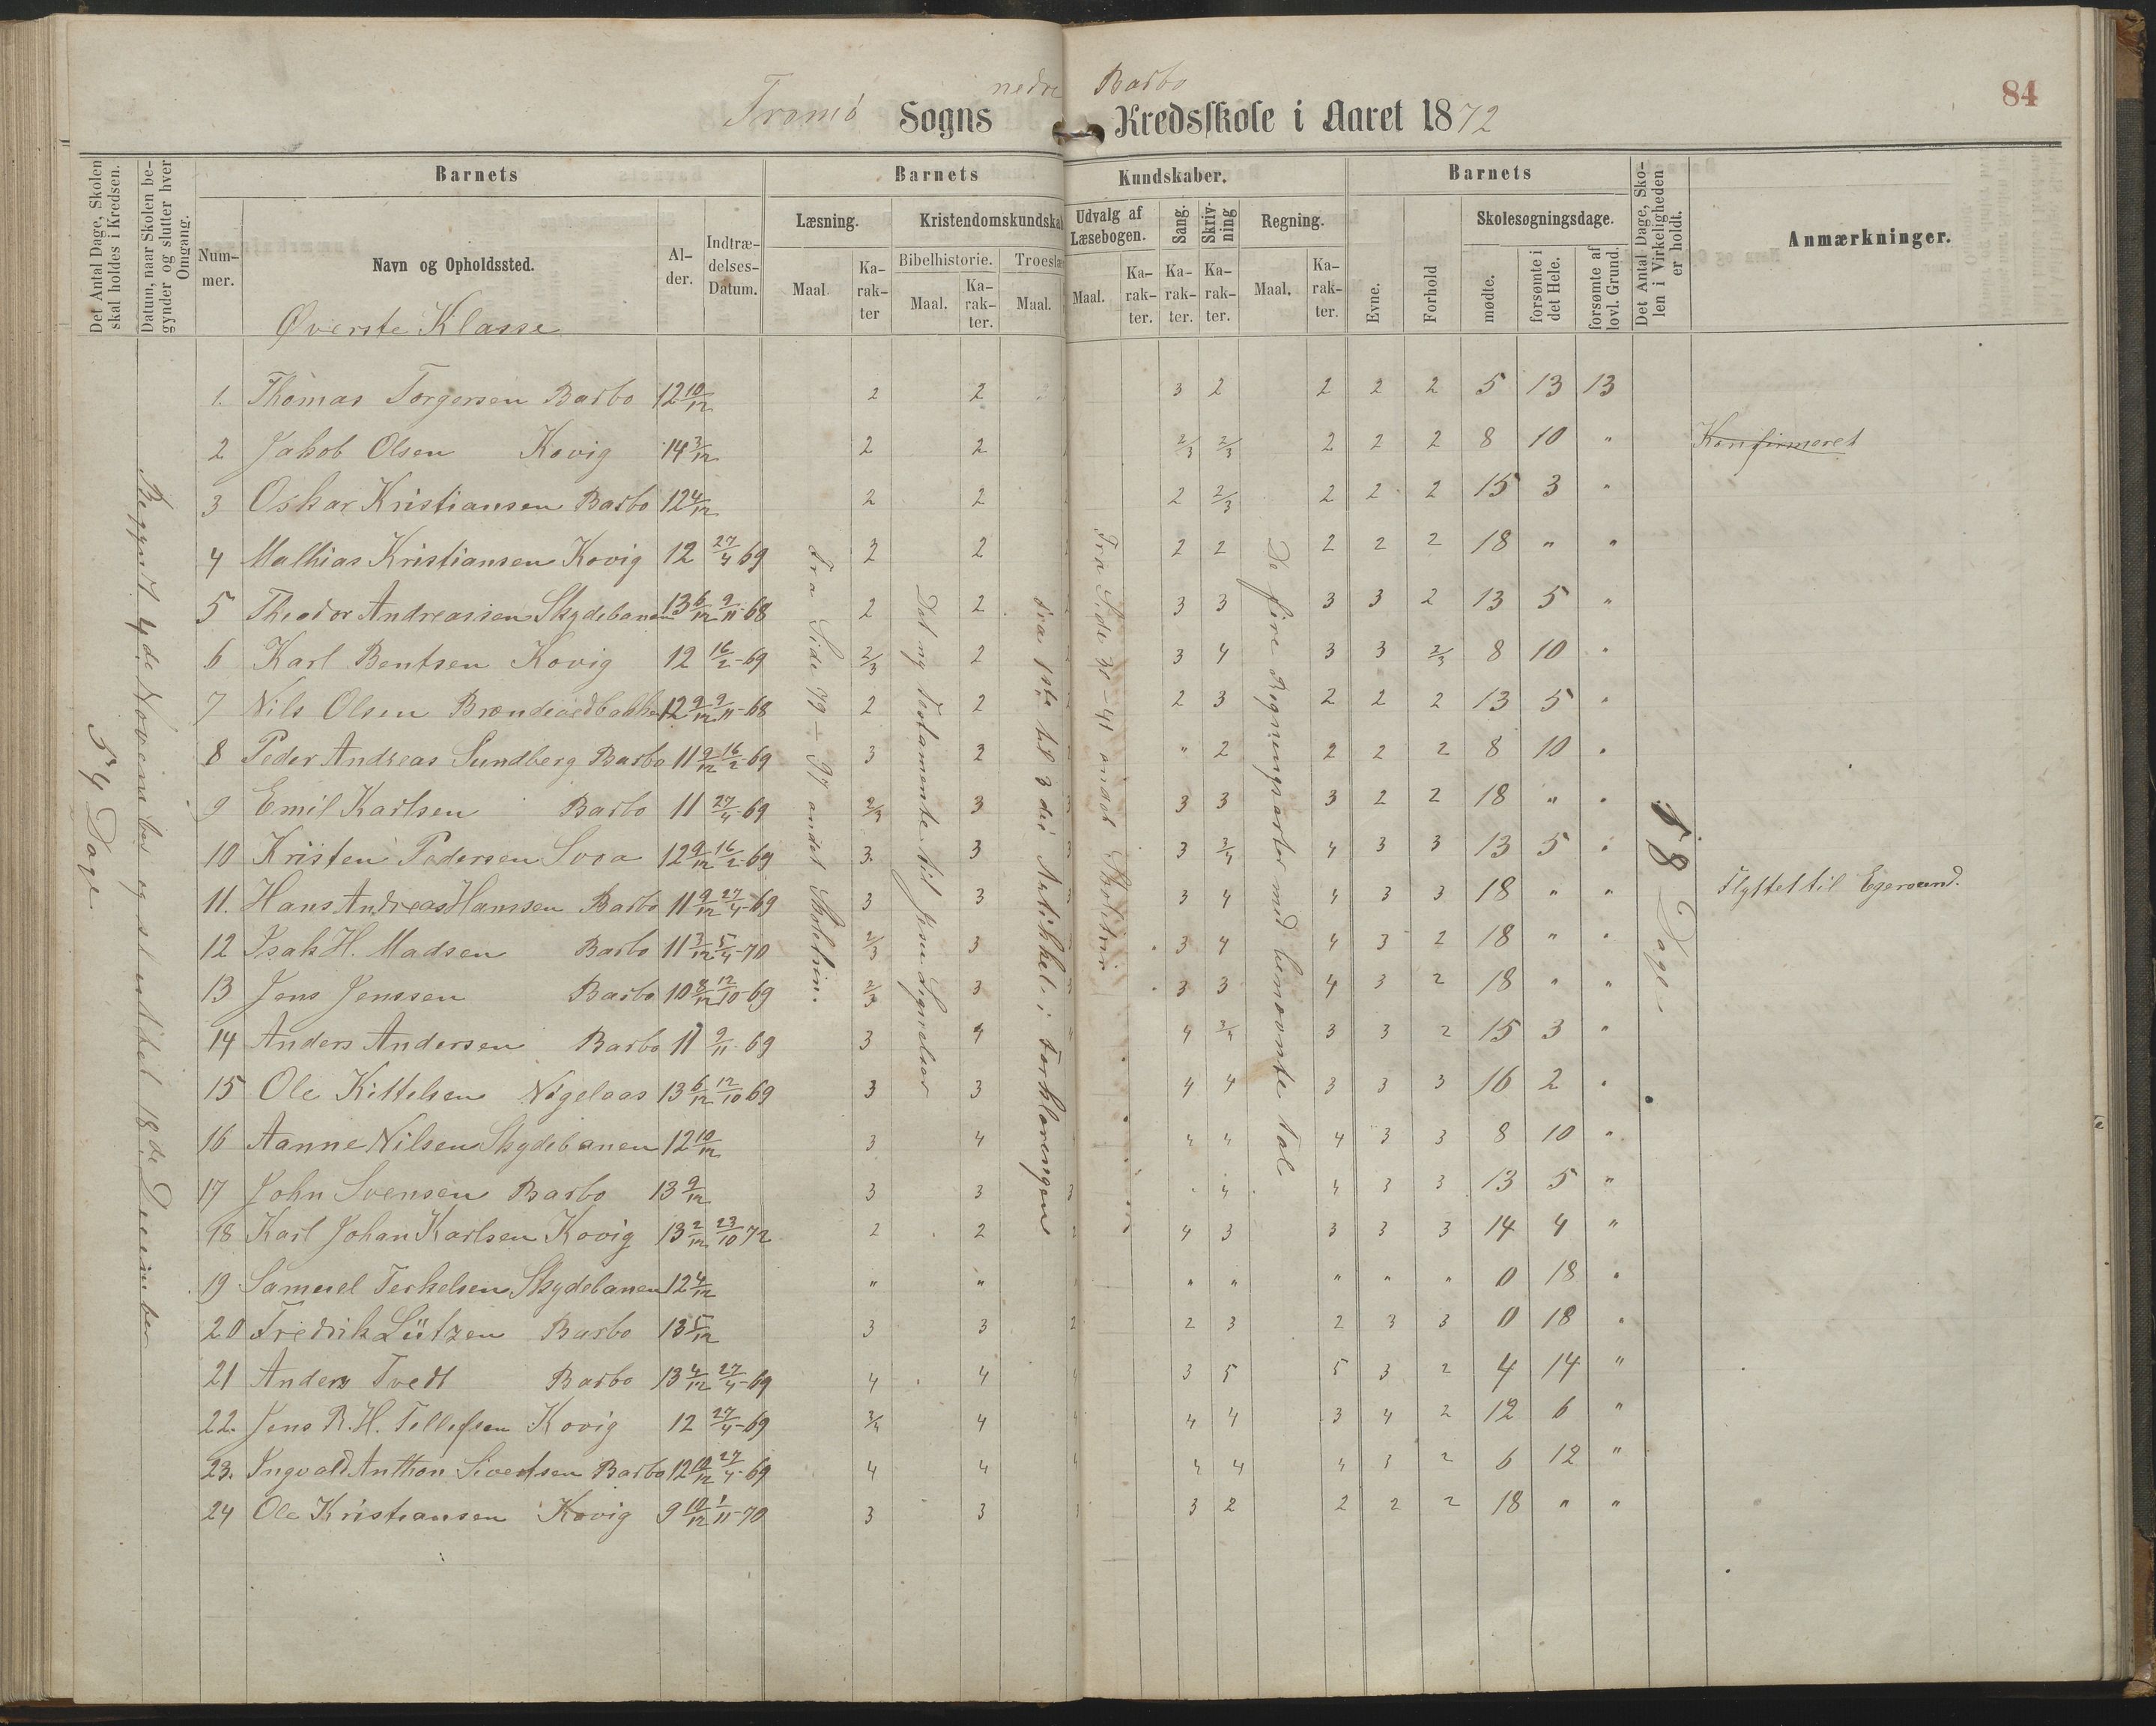 84
Tromø Sogns nedre Barbo Kredsskole i Aaret 1872
Det Antal Dage, Skolen skal holdes i Kredsen.
Datum, naar Skolen begynder og slutter hver Omgang.
Barnets
Nummer.
Navn og Opholdssted.
Alder.
Indtrædelses-Datum.
Barnets Kundskaber.
Læsning.
Maal.
Karakter
Kristendomskundskab
Bibelhistorie.
Maal.
Karakter.
Troeslære
Maal.
Udvalg af Læsebogen.
Maal.
Karakter.
Sang.
Karakter.
Skrivning
Karakter.
Regning.
Maal.
Karakter.
Barnets
Evne.
Forhold
Skolesøgningsdage.
mødte.
forsømte i det Hele.
forsømte af lovl. Grund.
Det Antal Dage, Skolen i Virkeligheden er holdt.
Anmærkninger.
Øverste Klasse
54 Dage
Begyndt 4de November og sluttet 18de December
Fra Side 79 - 97 andet Skoletrin.
Det ny Testamente til Jesu Lignelser
fra 1ste til 3die Artikkel i Forklaringen
De fire Regningsarter med benævnte Tal
58 Dage.
1. Thomas Torgersen Barbo 12 10/12 2 2 3 2 2 2 2 5 13 13
2 Jakob Olsen Kovig 14 3/12 2 2 2/3 2/3 2 2 2 8 10 " Konfirmeret
3 Oskar Kristiansen Barbo 12 4/12 2 2 2 2/3 2 2 2 15 3 "
4 Mathias Kristiansen Kovig 12 27/4 69 2 2 2 2 2 2 2 18 " "
5 Theodor Andreassen Skydebanen 13 6/12 9/11-68 2 2 3 3 3 3 2 13 5 "
6 Karl Bentsen Kovig 12 16/2-69 2/3 2 3 4 3 3 2/3 8 10 "
7 Nils Olsen 12 9/12 9/11-68 2 2 2 3 2 2 2 13 5 "
8 Peder Andreas Sundberg Barbo 11 9/12 16/2-69 3 2 " 2 2 2 2 8 10 "
9 Emil Karlsen Barbo 11 27/4-69 2/3 3 3 3 3 3 2 2 18 " "
10 Kristen Pedersen Svaa 12 9/12 16/2-69 3 3 3 3 3/4 4 3 3 13 5 "
11. Hans Andreas Hansen Barbo 11 9/12 27/4-69 3 3 3 4 4 3 3 18 " " Flyttet til Egersund.
12 Isak H. Madsen Barbo 11 3/12 5/4-70 2/3 3 3 4 4 3 2 18 " "
13 Jens Jenssen Barbo 10 8/12 12/10-69 2/3 3 3 3 4 3 2 18 " "
14 Anders Andersen Barbo 11 9/11-69 3 4 4 4 3/4 3 3 2 15 3 "
15 Ole Kittelsen 13 6/12 12/10 69 3 3 4 4 3 3 3 16 2 "
16 Aanne Nilsen Skydebanen 12 10/12 3 4 4 4 4 4 3 3 8 10 "
17 John Svensen Barbo 13 9/12 3 3 3 4 4 3 3 13 5 "
18 Karl Johan Karlsen Kovig 13 2/12 23/10 72 2 2 2 4 3 3 3 3 14 4 "
19 Samuel Terkelsen Skydebanen 12 4/12 " " " " " " " 0 18 "
20 Fredrik Lützen Barbo 13 5/12 3 3 2 2 3 2 3 3 0 18 "
21 Anders Tvedt Barbo 13 4/12 27/4-69 4 4 4 3 5 5 3 2 4 14 "
22. Jens R. H. Tellefsen Kovig 12 27/4-69 3/4 4 4 4 4 3 4 2 12 6 "
23. Ingvald Anthon Sivertsen Barbo 12 10/12 27/4-69 4 4 4 4 4 4 3 2 6 12 "
24 Ole Kristiansen Kovig 9 10/12 1/11-70 3 3 3 3 2 2 2 2 18 " "